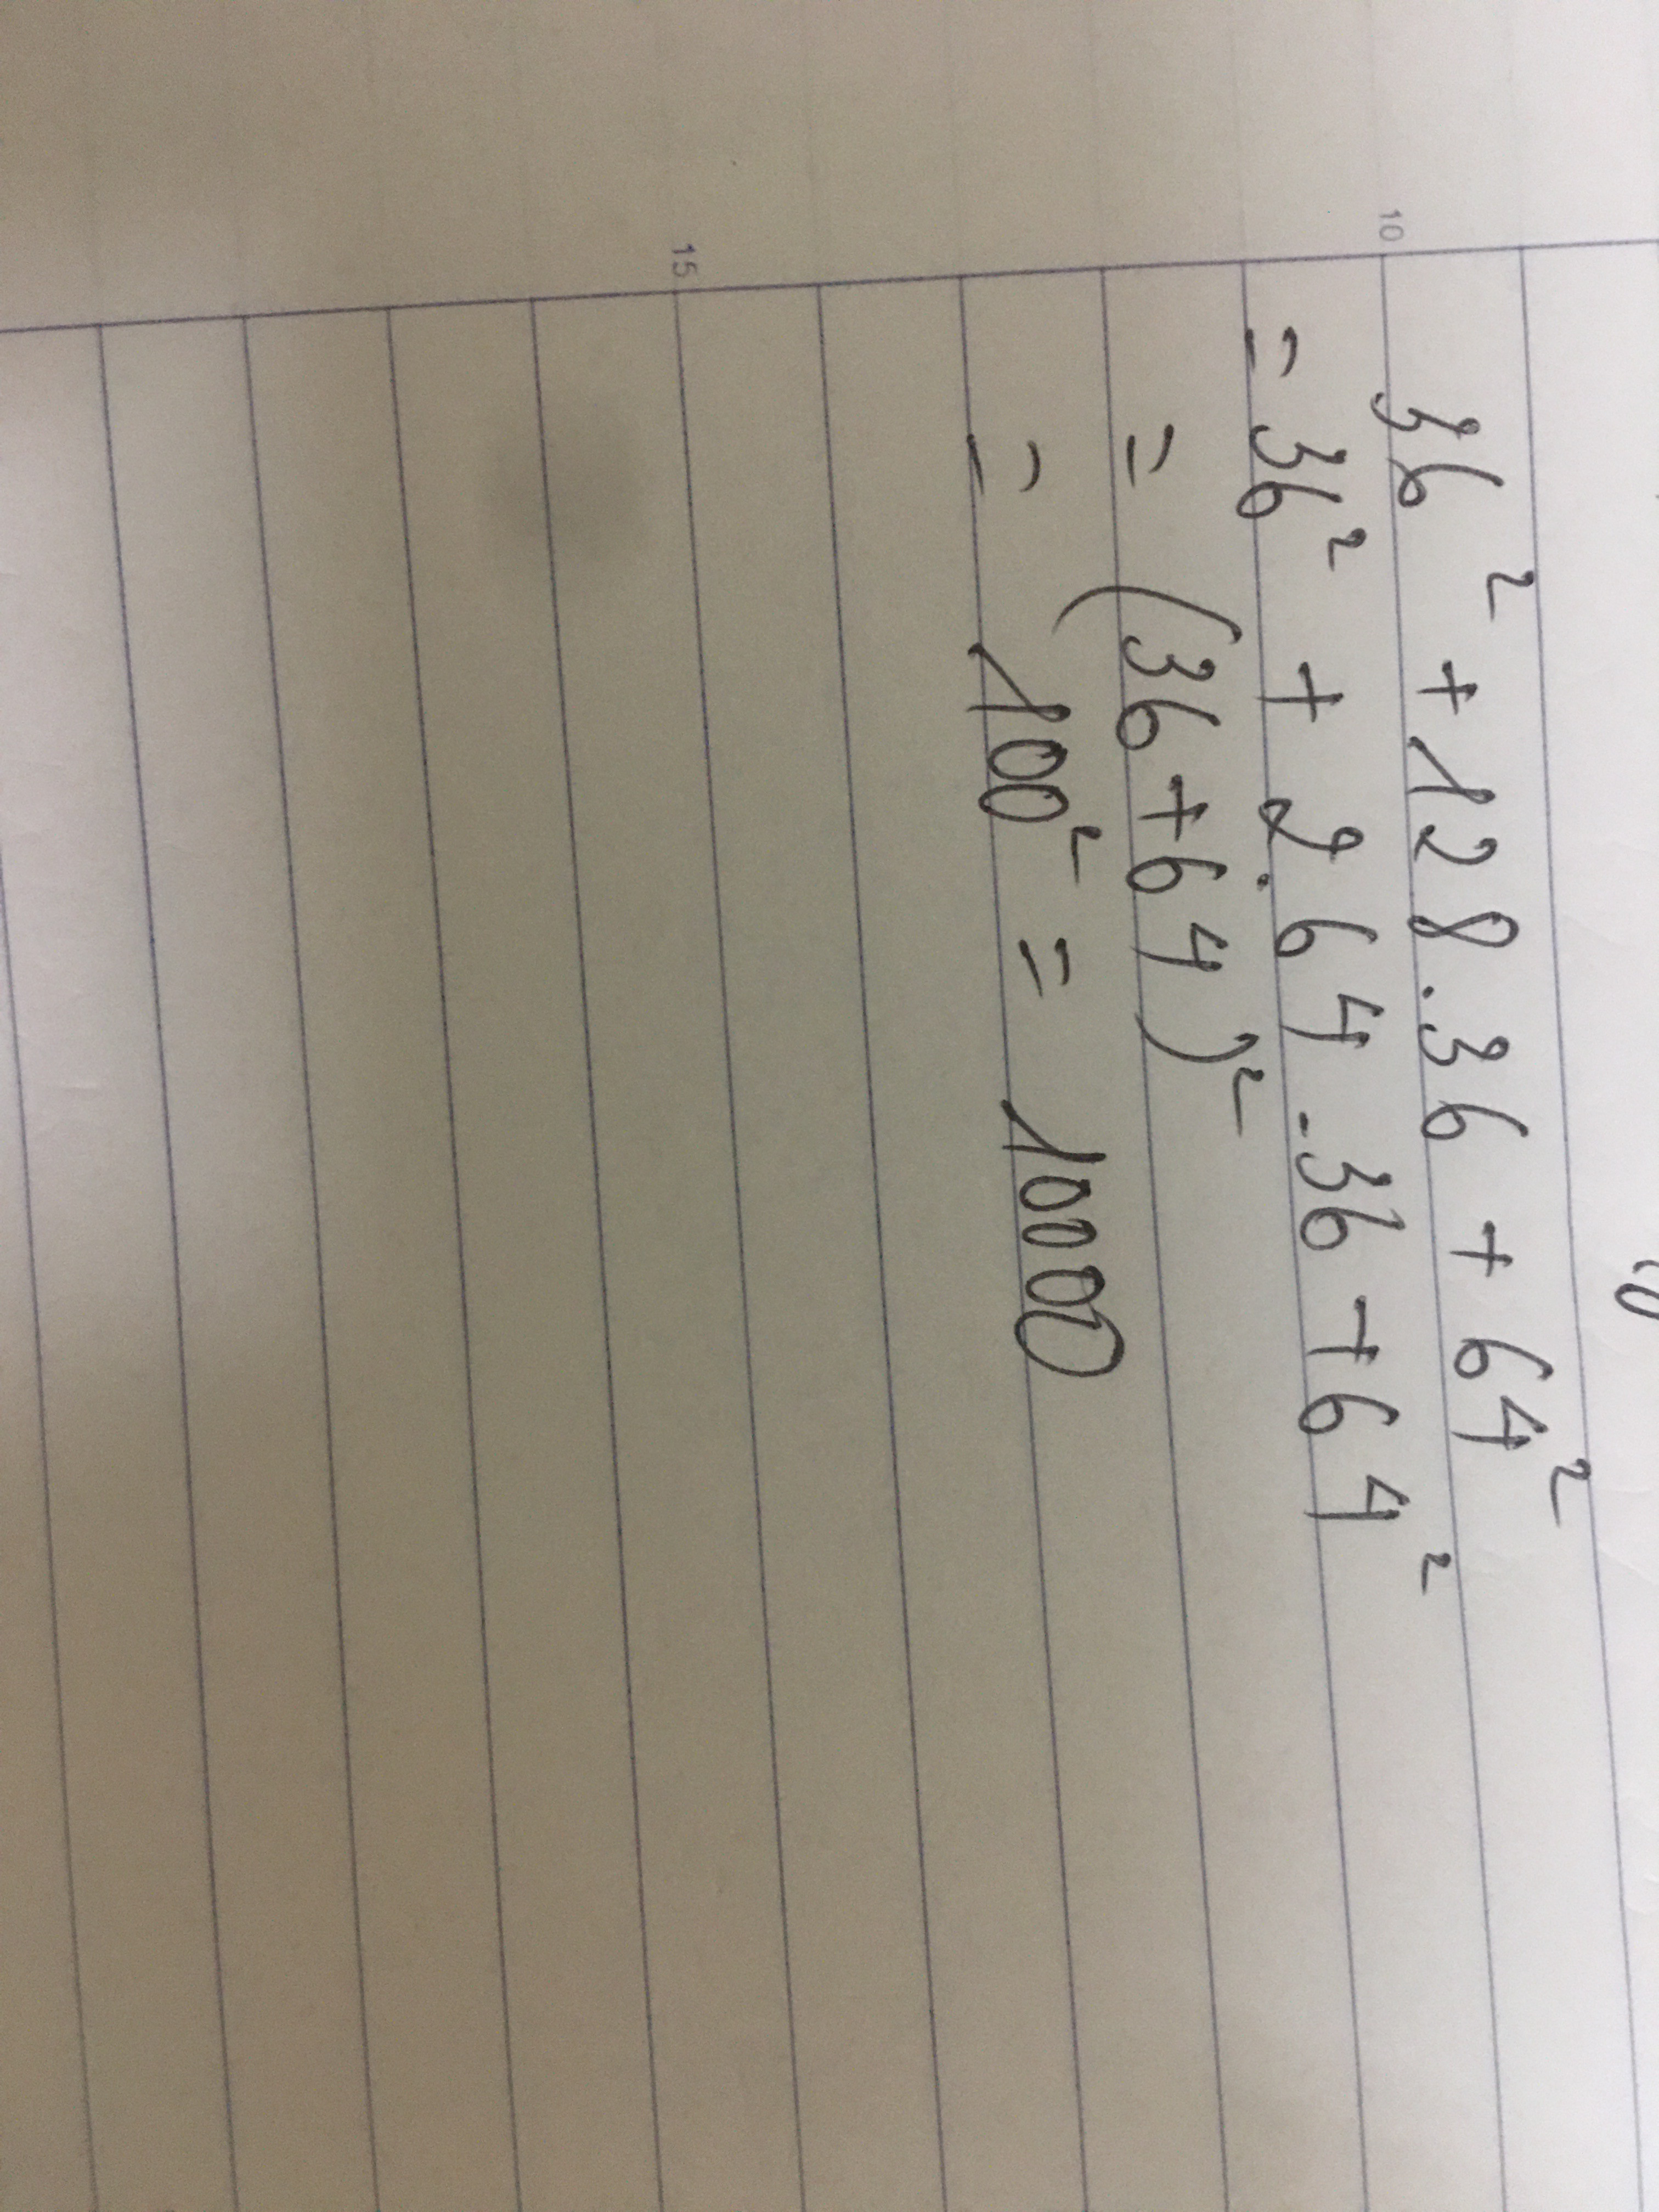 10
36² + 128.36 + 64²
= 36² + 2.64.36 + 64²
= (36+64)²
= 100² = 10000
15